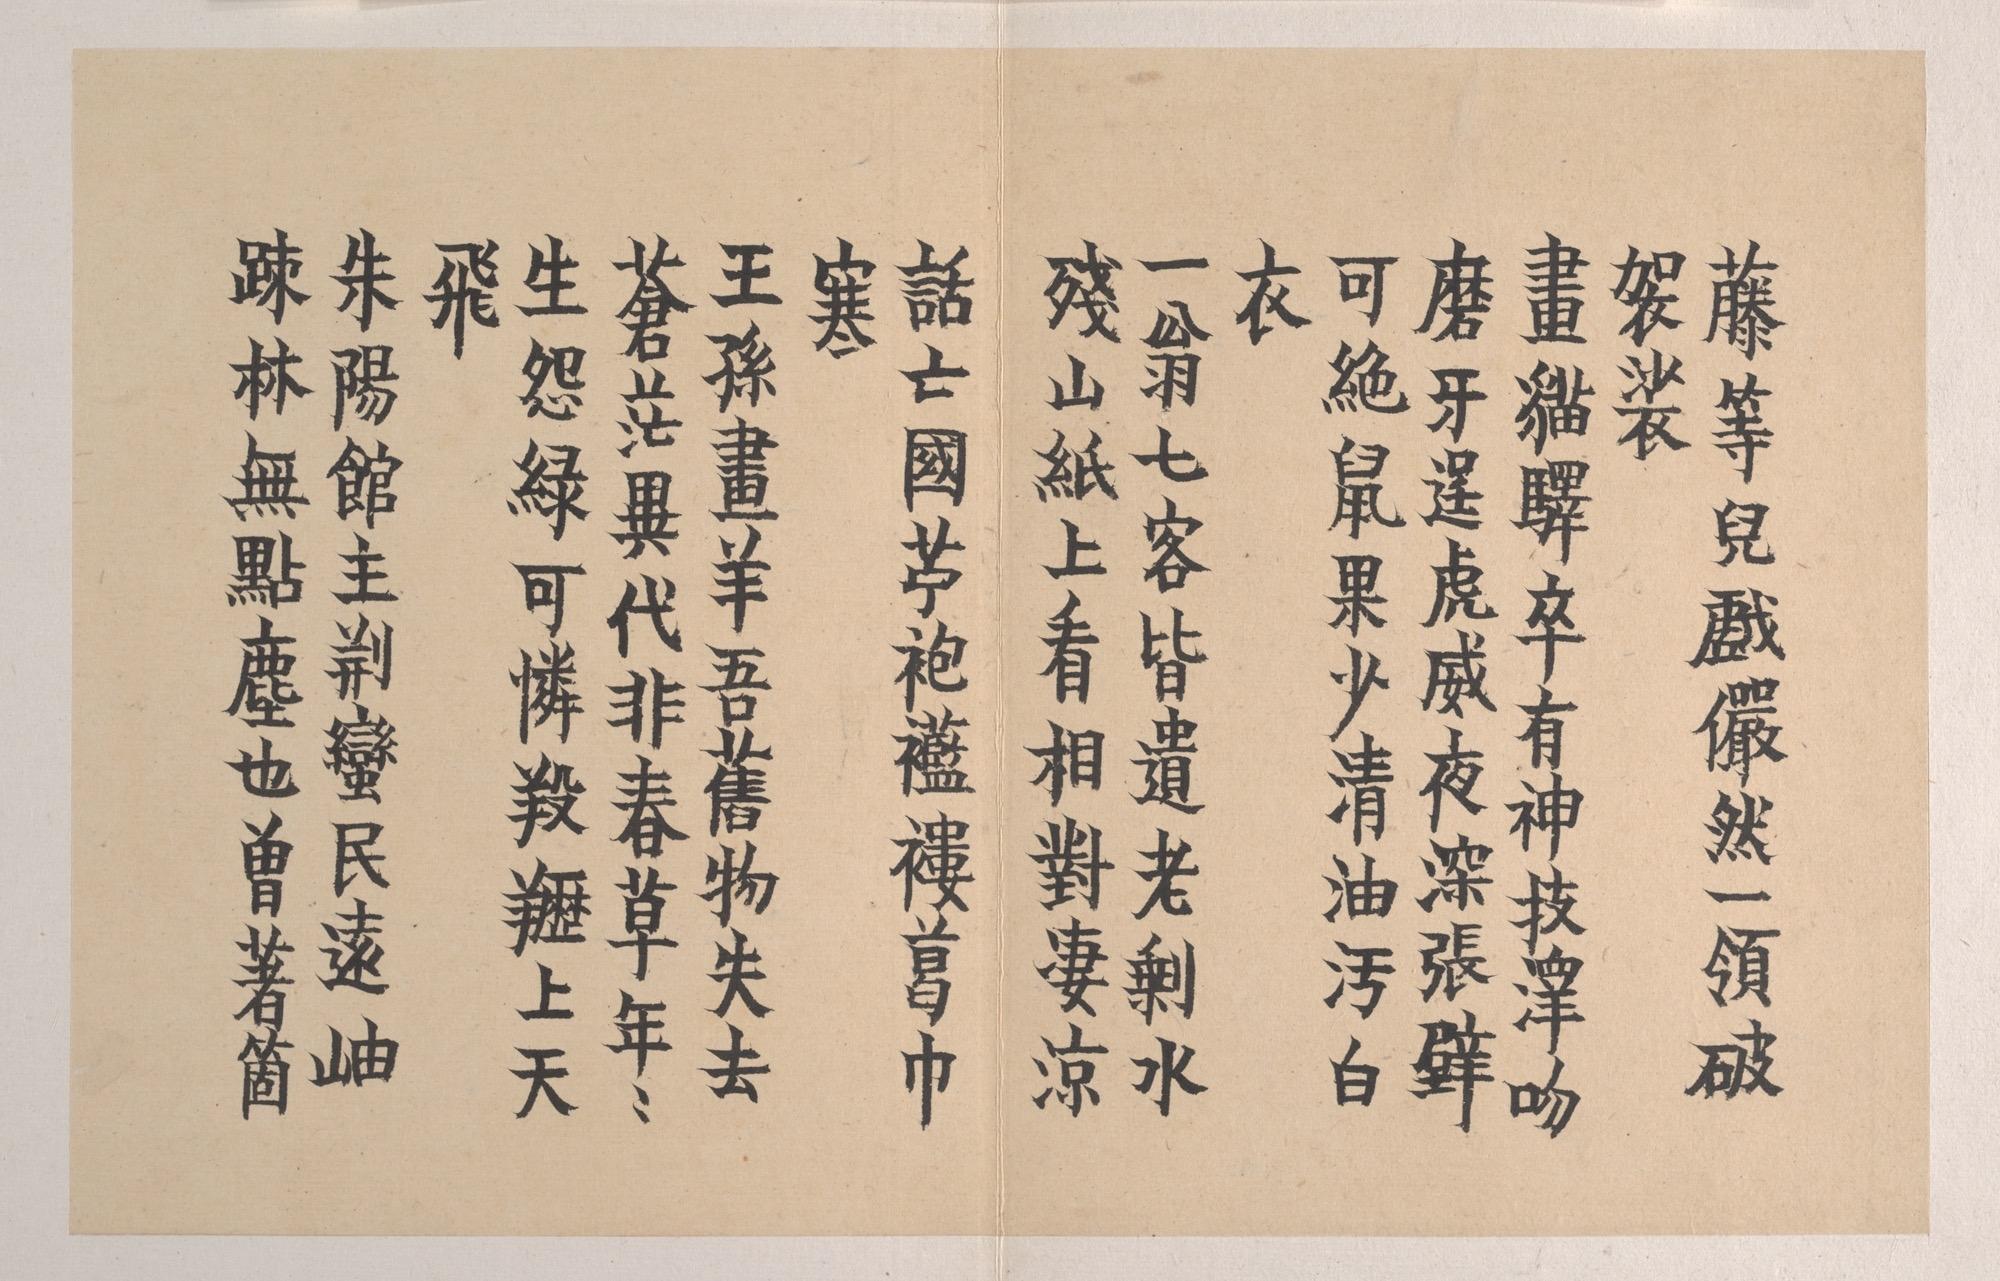 藤等兒戲儼然一領破
袈裟
畫貓驛卒有神技渾吻
磨牙逞虎威夜深張璧
可絶鼠果少清油汚白
衣
一翁七客皆遺老剩水
殘山紙上看相對凄涼
話亡國苧袍襤褸葛巾
寒
王孫畫羊吾舊物失去
蒼茫異代非春草年〻
生怨緑可憐羖䍽上天
飛
朱陽館主荆蠻民遠岫
踈林無點塵也曾著箇